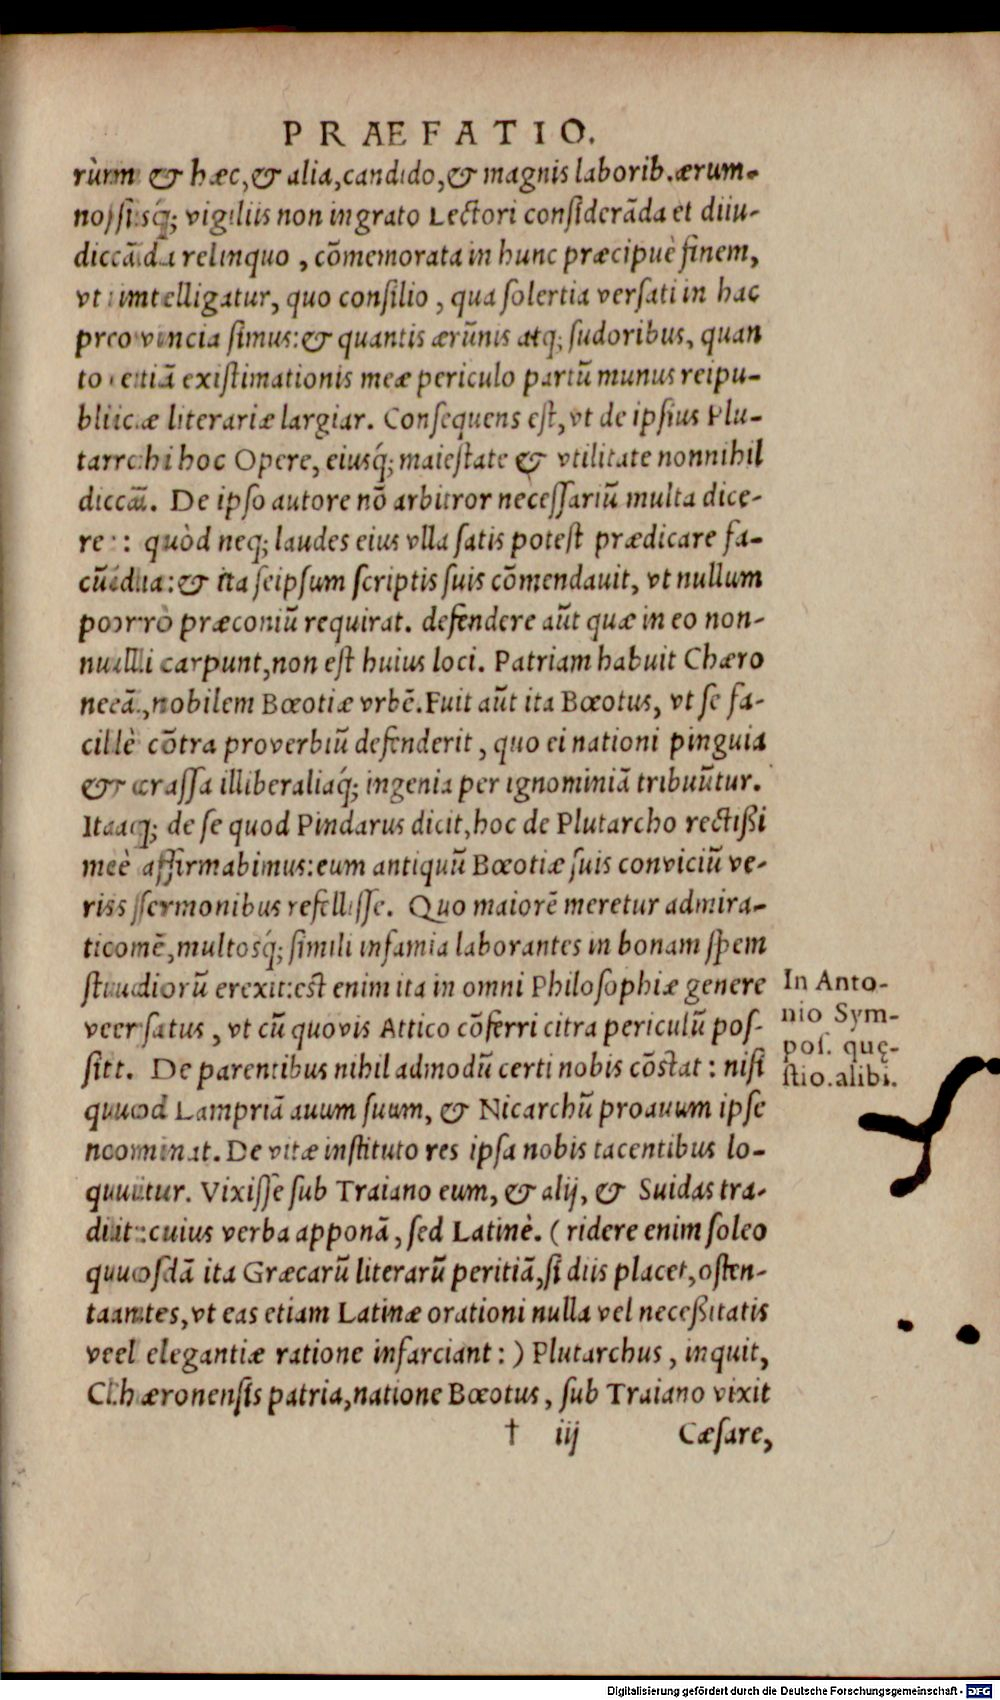 PRAEFATIO.
rùm & hæc, & alia, candido, & magnis laborib. ærum-
nosisq́; vigiliis non ingrato Lectori considerãda et diiu-
dicãda relinquo, cõmemorata in hunc præcipuè finem,
vt intelligatur, quo consilio, qua solertia versati in hac
prouincia simus: & quantis ærũnis atq; sudoribus, quan
to etiã existimationis meæ periculo partũ munus reipu-
blicæ literariæ largiar. Consequens est, vt de ipsius Plu-
tarchi hoc Opere, eiusq́; maiestate & vtilitate nonnihil
dicã. De ipso autore nõ arbitror necessariũ multa dice-
re: quòd neq; laudes eius vlla satis potest prædicare fa-
cũdia: & ita seipsum scriptis suis cõmendauit, vt nullum
porrò præconiũ requirat. defendere aũt quæ in eo non-
nulli carpunt, non est huius loci. Patriam habuit Chæro
neã, nobilem Bœotiæ vrbẽ. Fuit aũt ita Bœotus, vt se fa-
cilè cõtra proverbiũ defenderit, quo ei nationi pinguia
& crassa illiberaliaq́; ingenia per ignominiã tribuũtur.
Itaq; de se quod Pindarus dicit, hoc de Plutarcho rectißi
mè affirmabimus: eum antiquũ Bœotiæ suis conviciũ ve-
ris sermonibus refellisse. Quo maiorẽ meretur admira-
tionẽ, multosq́; simili infamia laborantes in bonam spem
studiorũ erexit: est enim ita in omni Philosophiæ genere
versatus, vt cũ quovis Attico cõferri citra periculũ pos-
sit. De parentibus nihil admodũ certi nobis cõstat: nisi
quod Lampriã auum suum, & Nicarchũ proauum ipse
nominat. De vitæ instituto res ipsa nobis tacentibus lo-
quitur. Vixisse sub Traiano eum, & alij, & Suidas tra-
dit: cuius verba apponã, sed Latinè. (ridere enim soleo
quosdã ita Græcarũ literarũ peritiã, si diis placet, osten-
tantes, vt eas etiam Latinæ orationi nulla vel neceßitatis
vel elegantiæ ratione infarciant:) Plutarchus, inquit,
Chæronensis patria, natione Bœotus, sub Traiano vixit
† iij Cæsare,
In Anto-
nio Sym-
pos. quę-
stio. alibi.
Digitalisierung gefördert durch die Deutsche Forschungsgemeinschaft - DFG